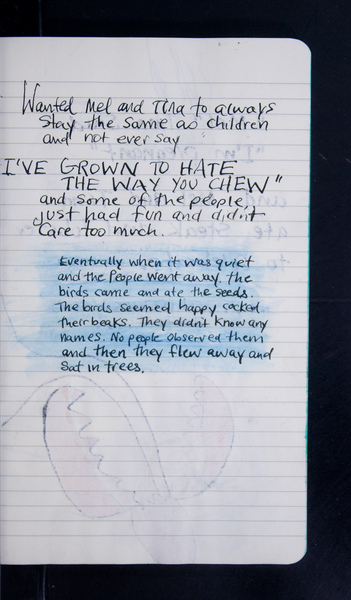 Wanted Mel and Tina to always
Stay the same as children
and not ever say
I'VE GROWN TO HATE
THE WAY YOU CHEW"
and some of the people
just had fun and didn't
care too much.
Eventually when it was quiet
and the People went away. the
birds came and ate the seeds.
The birds seemed happy cocked
their beaks. They didn't know any
names. No people observed them
and then they flew away and
Sat in trees.